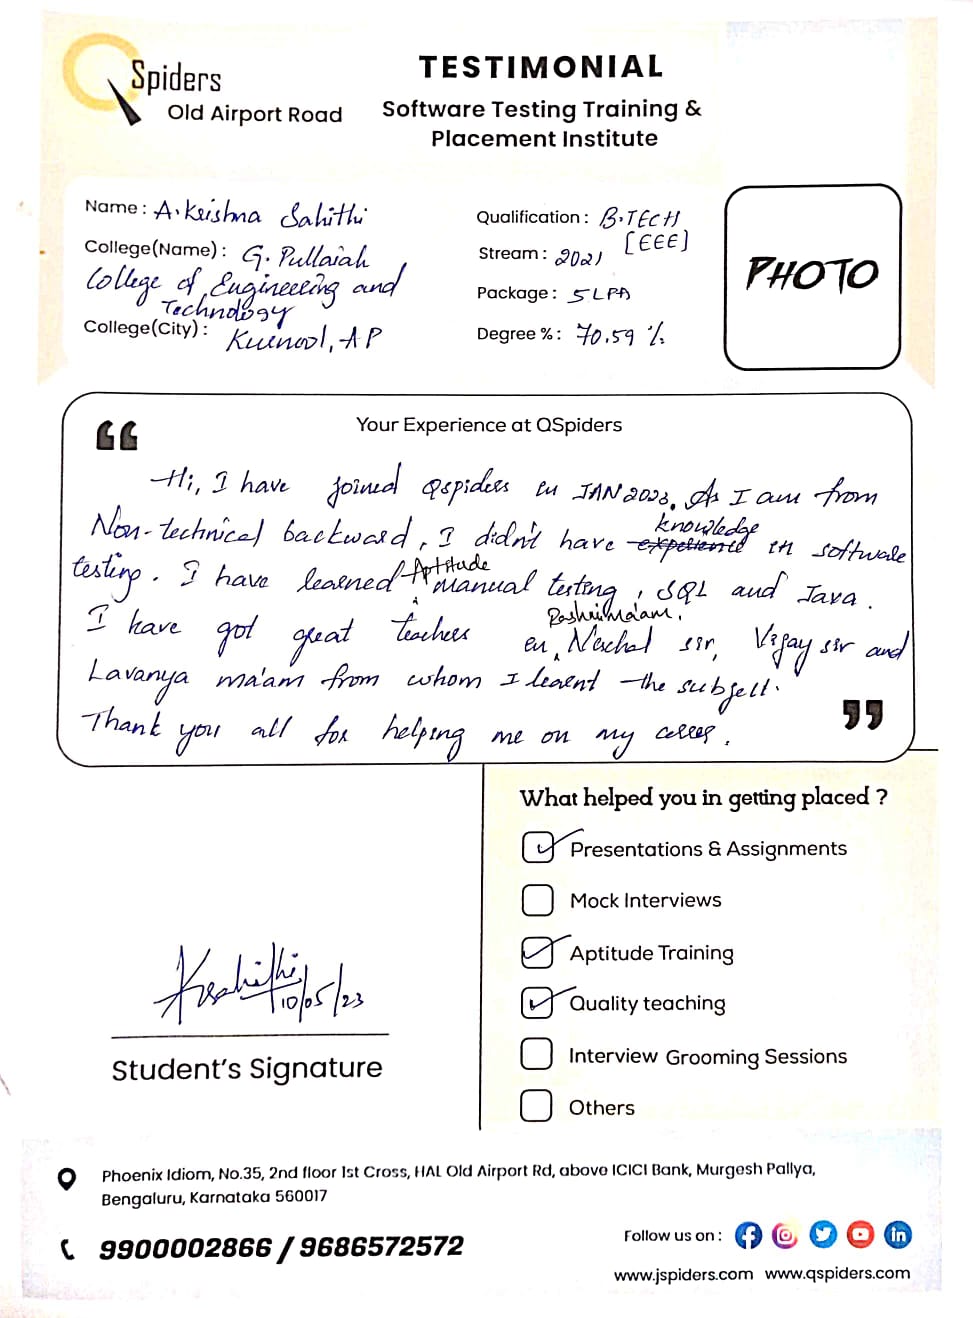 QSpiders
Old Airport Road
TESTIMONIAL
Software Testing Training &
Placement Institute
Name : A. Krishna Sahithi
College(Name) : G. Pullaiah
College of Engineering and
Technology
College(City) : Kurnool, AP
Qualification : B.TECH
[EEE]
Stream : 2021
Package : 5 LPA
Degree % : 70.59 %
PHOTO
Your Experience at QSpiders
Hi, I have joined Qspiders in JAN 2023. As I am from
Non-technical backward, I didn't have experience knowledge in software
testing. I have learned Aptitude manual testing, SQL and Java.
I have got great teachers in Rashmi ma'am, sir, Vijay sir and
Lavanya ma'am from whom I learnt the subject.
Thank you all for helping me on my career.
What helped you in getting placed ?
Presentations & Assignments
Mock Interviews
Aptitude Training
Quality teaching
Interview Grooming Sessions
Others
Ksahithi
10/05/23
Student's Signature
Phoenix Idiom, No.35, 2nd floor 1st Cross, HAL Old Airport Rd, above ICICI Bank, Murgesh Pallya,
Bengaluru, Karnataka 560017
9900002866 / 9686572572
Follow us on :
www.jspiders.com www.qspiders.com